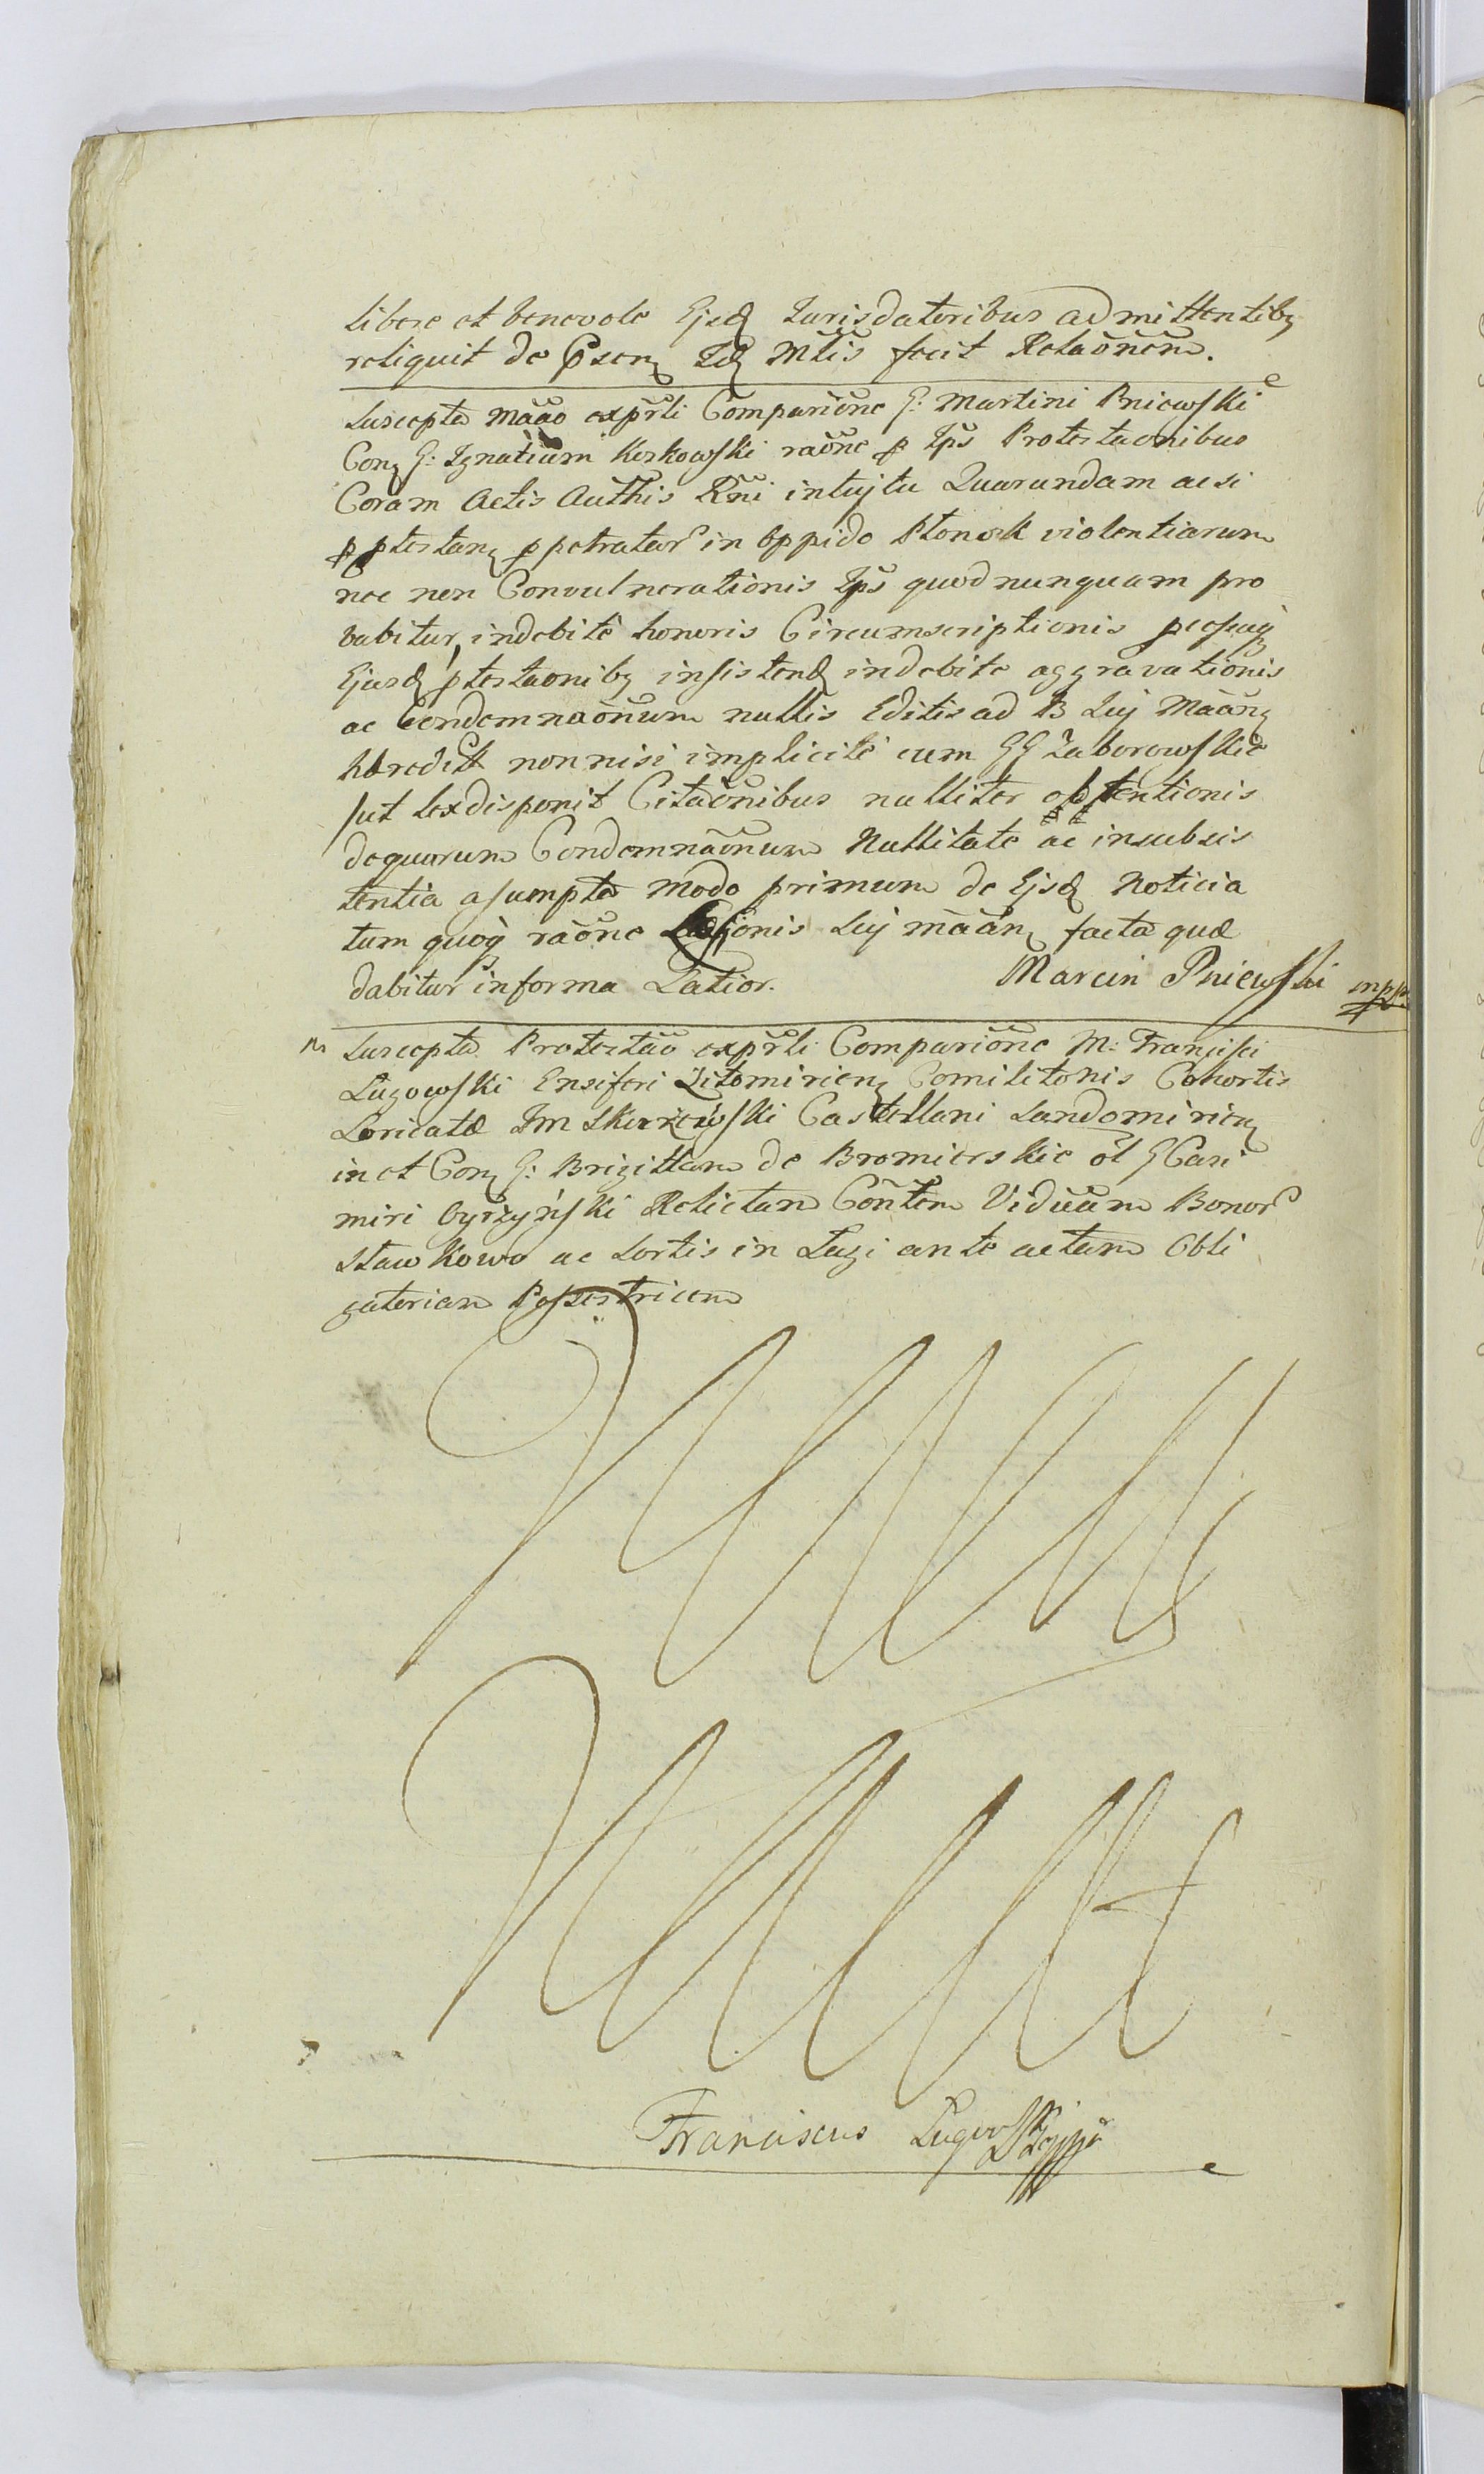 libere et benevole Ejsdꝫ Jurisdatoribus admittentibꝫ
reliquit de Psenꝫ Idꝫ Mtlis fecit Relaõnem.
Suscepta Maão exp̃rli Compariõne G: Martini Pniewski
Conꝫ G: Ignatium Koskowski raõne p Ips Protestaonibus
Coram Actis Authis Rñi intujtu Quarundam acsi
p ptestanꝫ ppetratar in Oppido Płonsk violentiarum
nec non Convulnerationis Ips quod nunquam pro
babitur, indebité honoris Circumscriptionis
Ejusdꝫ ptestaonibꝫ insistendꝫ indebite aggravationis
ac Condemnaõnum nullis Editis ad B Suj Maãnꝫ
hæredit non nisi implicité cum GG Zaborowskie
sut lex disponit Citaõnibus nulliter obtentionis
dequarum Condemnaõnum Nullitate ac insubsis
tentia asumpta modo primum de Ejsdꝫ Noticia
tum quoqꝫ raõne Læsionis Suj maãnꝫ facta quæ
dabitur informa Latior. Marcin Pniewski mpp
M Suscepta Protestaõ exp̃rli Compariõne M: Francisci
Ługowski Ensiferi Zitomirienꝫ Comilitonis Cohortis
Loricatæ Jm Skarżewski Castellani Sandomirienꝫ
in et Conꝫ G: Brigittam de Bromierskie ol G Casi
miri Gyrzyński Relictam Cõntem Viduam Bonor
Sławkowo ac Sortis in Ługi ante actam Obli
gatoriam Possestricem
Franciscus Ługowski